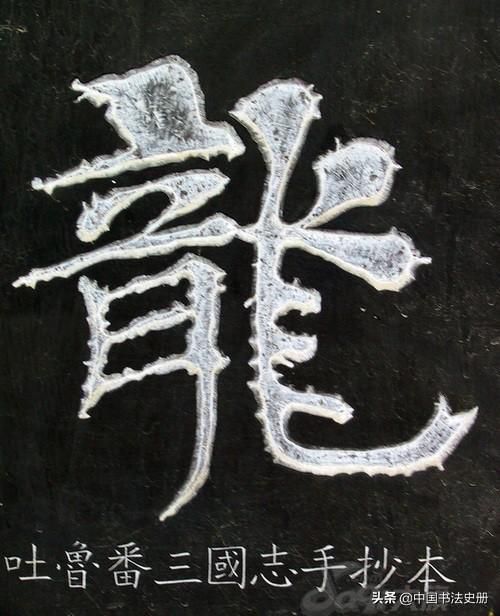 龍
吐·魯番三國志手抄本
头条 @中国书法史册